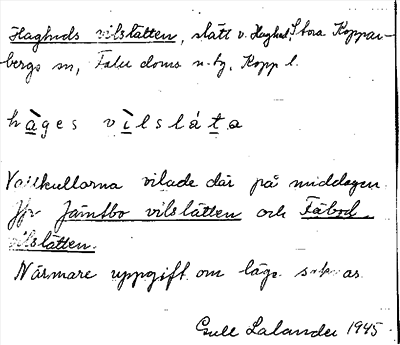 Haghuds vilslätten, slätt v. Haghed, Stora Koppar-
bergs sn, Falu doms n-tg, Kopp l.
hàges vìlsláta
Vallkullorna vilade där på middagen
Jfr Jämtbo vilslätten och Fäbod-
vilslätten.
Närmare uppgift om läge saknas
Gull Lalander 1945